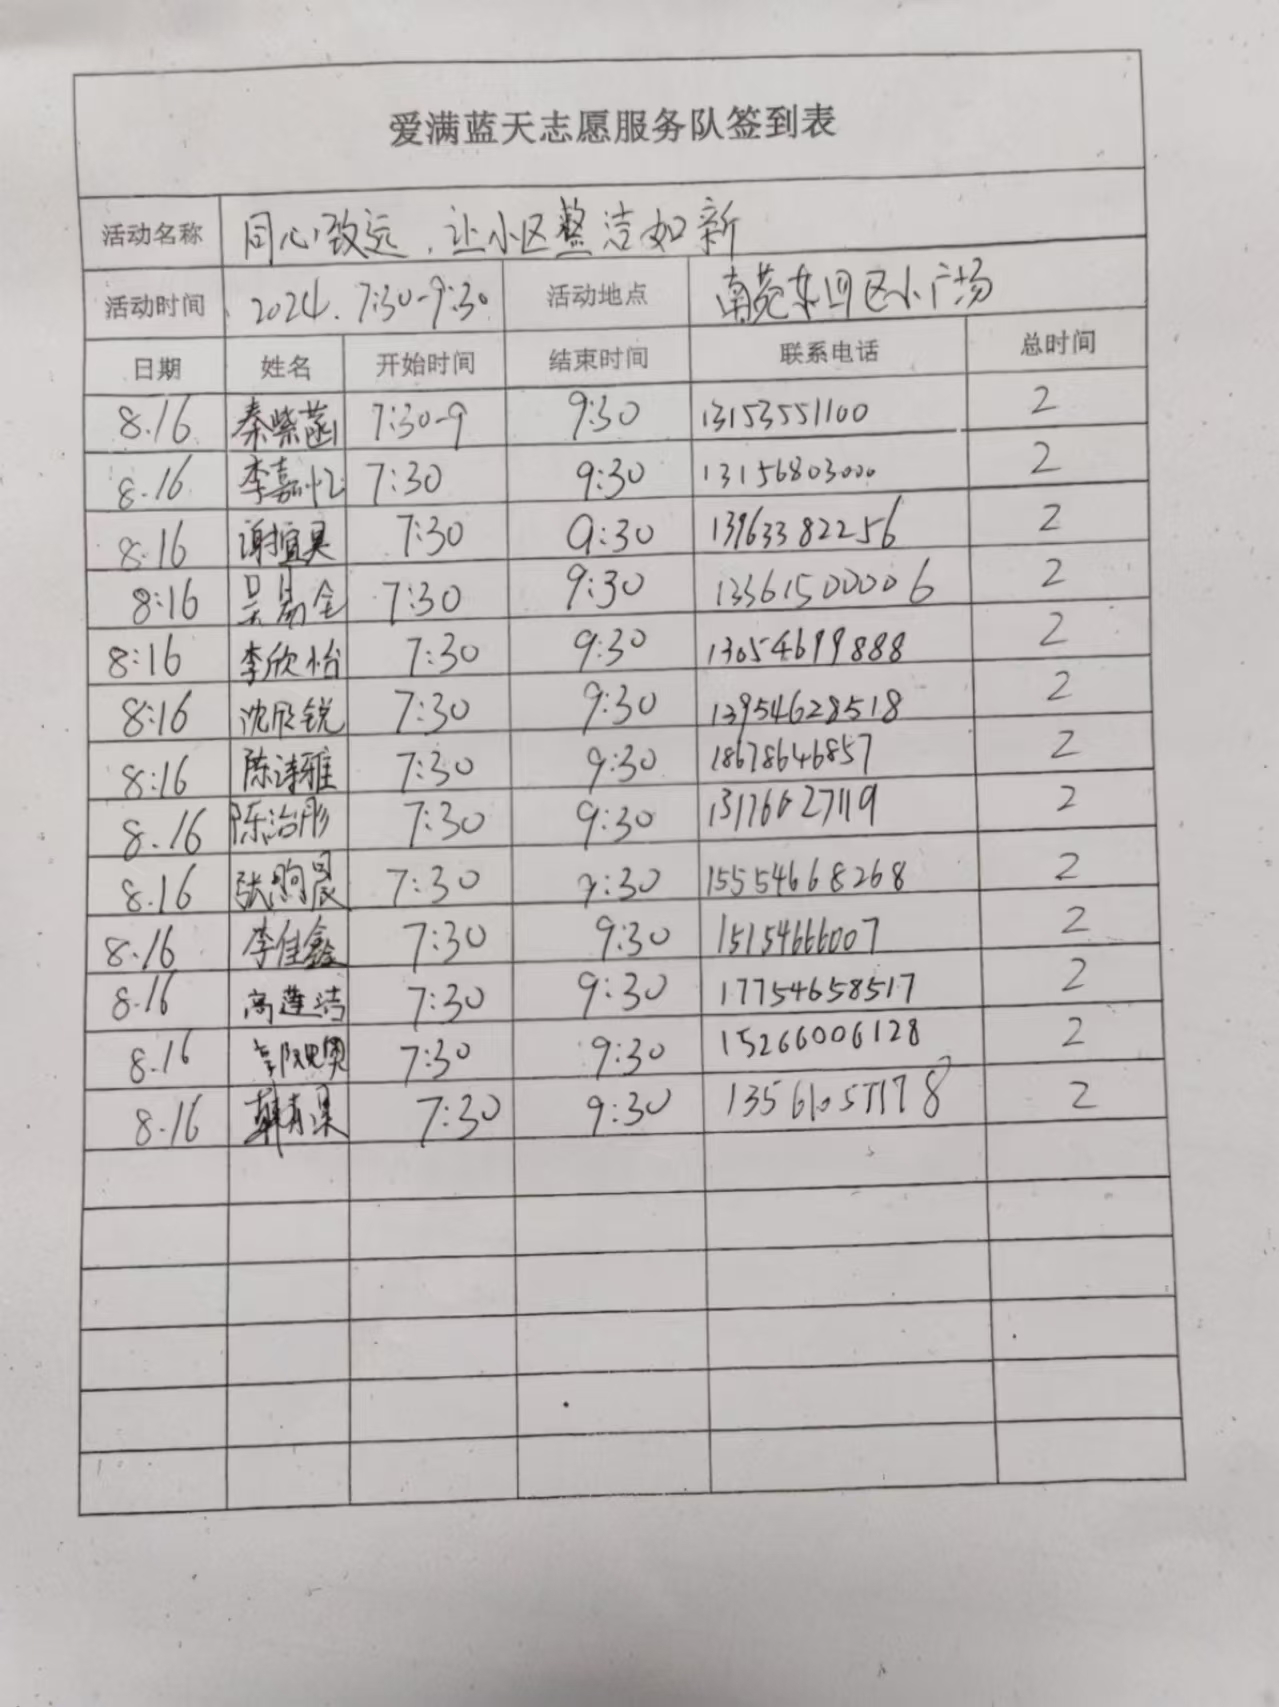 爱满蓝天志愿服务队签到表
活动名称 同心致远，让小区整洁如新
活动时间 2024. 7:30-9:30 活动地点 南苑东四区小广场
日期 姓名 开始时间 结束时间 联系电话 总时间
8.16 秦紫菡 7:30-9 9:30 13153551100 2
8.16 李嘉忆 7:30 9:30 13156803000 2
8:16 谢宜昊 7:30 9:30 13963382256 2
8:16 吴易全 7:30 9:30 13361500006 2
8:16 李欣怡 7:30 9:30 13054699888 2
8:16 沈欣锐 7:30 9:30 13954628518 2
8:16 陈诗雅 7:30 9:30 18678646857 2
8.16 陈治彤 7:30 9:30 13176627119 2
8.16 张 晨 7:30 9:30 15554668268 2
8.16 李佳鑫 7:30 9:30 15154666007 2
8.16 高莲洁 7:30 9:30 17754658517 2
8.16 7:30 9:30 15266006128 2
8.16 韩 7:30 9:30 2